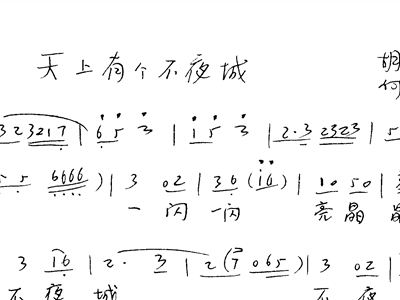 天上有个不夜城
胡
何
3 2 3 2 1 7 | 6 5 3 | 1 5 3 | 2·3 2323 | 5
5 5 6666) | 3 02 | 36 (i6) | 10 50 |
一 闪 一闪 亮 晶 晶
3 i6 | 2· 3 | 2 (7 065) | 3 02 |
不夜 城 不 夜